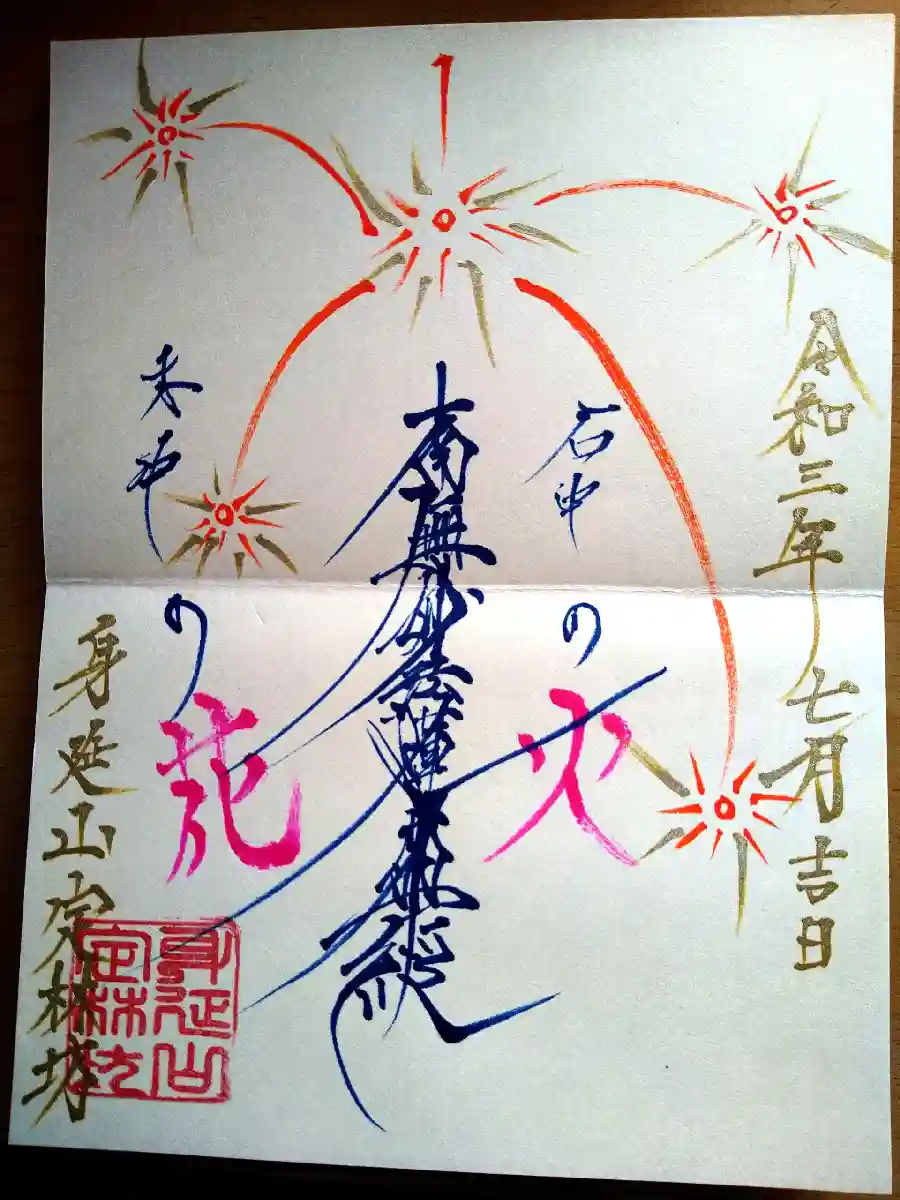 令和三年七月吉日
石中の火
南無妙法蓮華経
木中の花
身延山定林坊
身延山定林坊